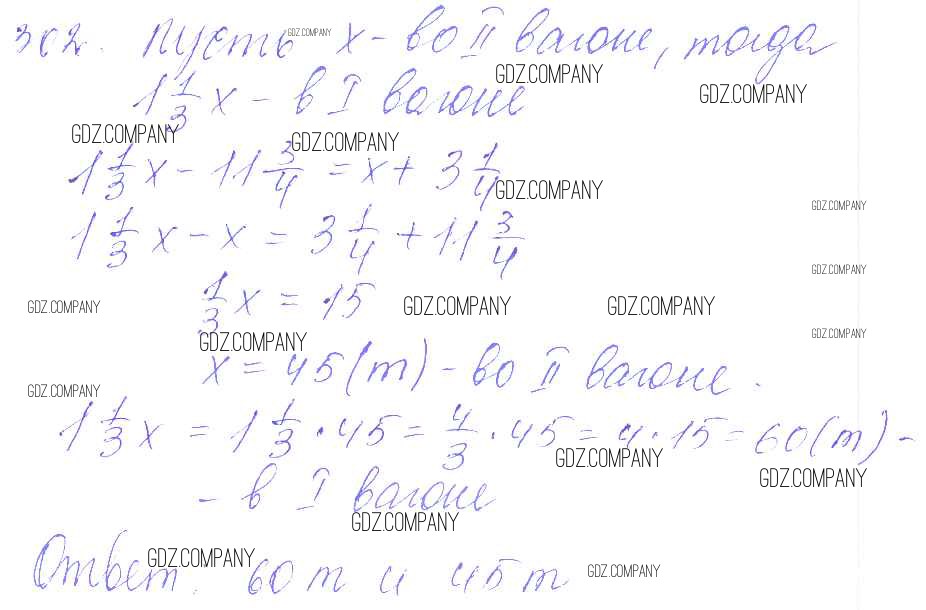 302. Пусть x - во II вагоне, тогда
GDZ.COMPANY
1 1/3 x - в I вагоне
GDZ.COMPANY
GDZ.COMPANY
GDZ.COMPANY
GDZ.COMPANY
1 1/3 x - 11 3/4 = x + 3 1/4
GDZ.COMPANY
GDZ.COMPANY
1 1/3 x - x = 3 1/4 + 11 3/4
GDZ.COMPANY
1/3 x = 15
GDZ.COMPANY
GDZ.COMPANY
GDZ.COMPANY
GDZ.COMPANY
GDZ.COMPANY
x = 45 (т) - во II вагоне.
GDZ.COMPANY
1 1/3 x = 1 1/3 · 45 = 4/3 · 45 = 4 · 15 = 60 (т) -
GDZ.COMPANY
GDZ.COMPANY
- в I вагоне
GDZ.COMPANY
Ответ. 60 т и 45 т
GDZ.COMPANY
GDZ.COMPANY